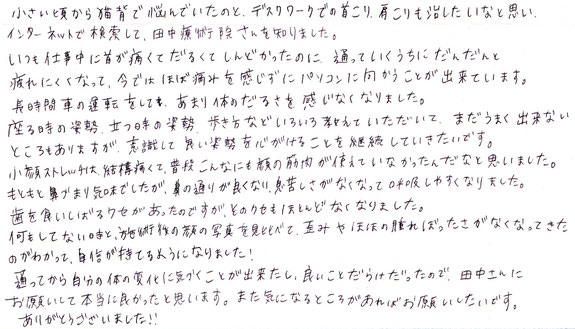 小さい頃から猫背で悩んでいたのと、デスクワークでの首こり、肩こりも治したいなと思い、
インターネットで検索して、田中療術院さんを知りました。
いつも仕事中に首が痛くてだるくてしんどかったのに、通っていくうちにだんだんと
疲れにくくなって、今では ほぼ痛みを感じずにパソコンに向かうことが出来ています。
長時間車の運転をしても、あまり体のだるさを感じなくなりました。
座る時の姿勢、立つ時の姿勢、歩き方などいろいろ教えていただいて、まだうまく出来ない
ところもありますが、意識して良い姿勢を心がけることを継続していきたいです。
小顔ストレッチは、結構痛くて、普段こんなにも顔の筋肉が使えていなかったんだなと思いました。
もともと鼻づまり気味でしたが、鼻の通りが良くなり、息苦しさがなくなって呼吸しやすくなりました。
歯を食いしばるクセがあったのですが、そのクセもほとんどなくなりました。
何もしてない時と、施術後の顔の写真を見比べて、歪みやほほの腫れぼったさがなくなってきた
のがわかって、自信が持てるようになりました!
通ってから自分の体の変化に気づくことが出来たし、良いことだらけだったので、田中さんに
お願いして本当に良かったと思います。また気になるところがあればお願いしたいです。
ありがとうございました!!